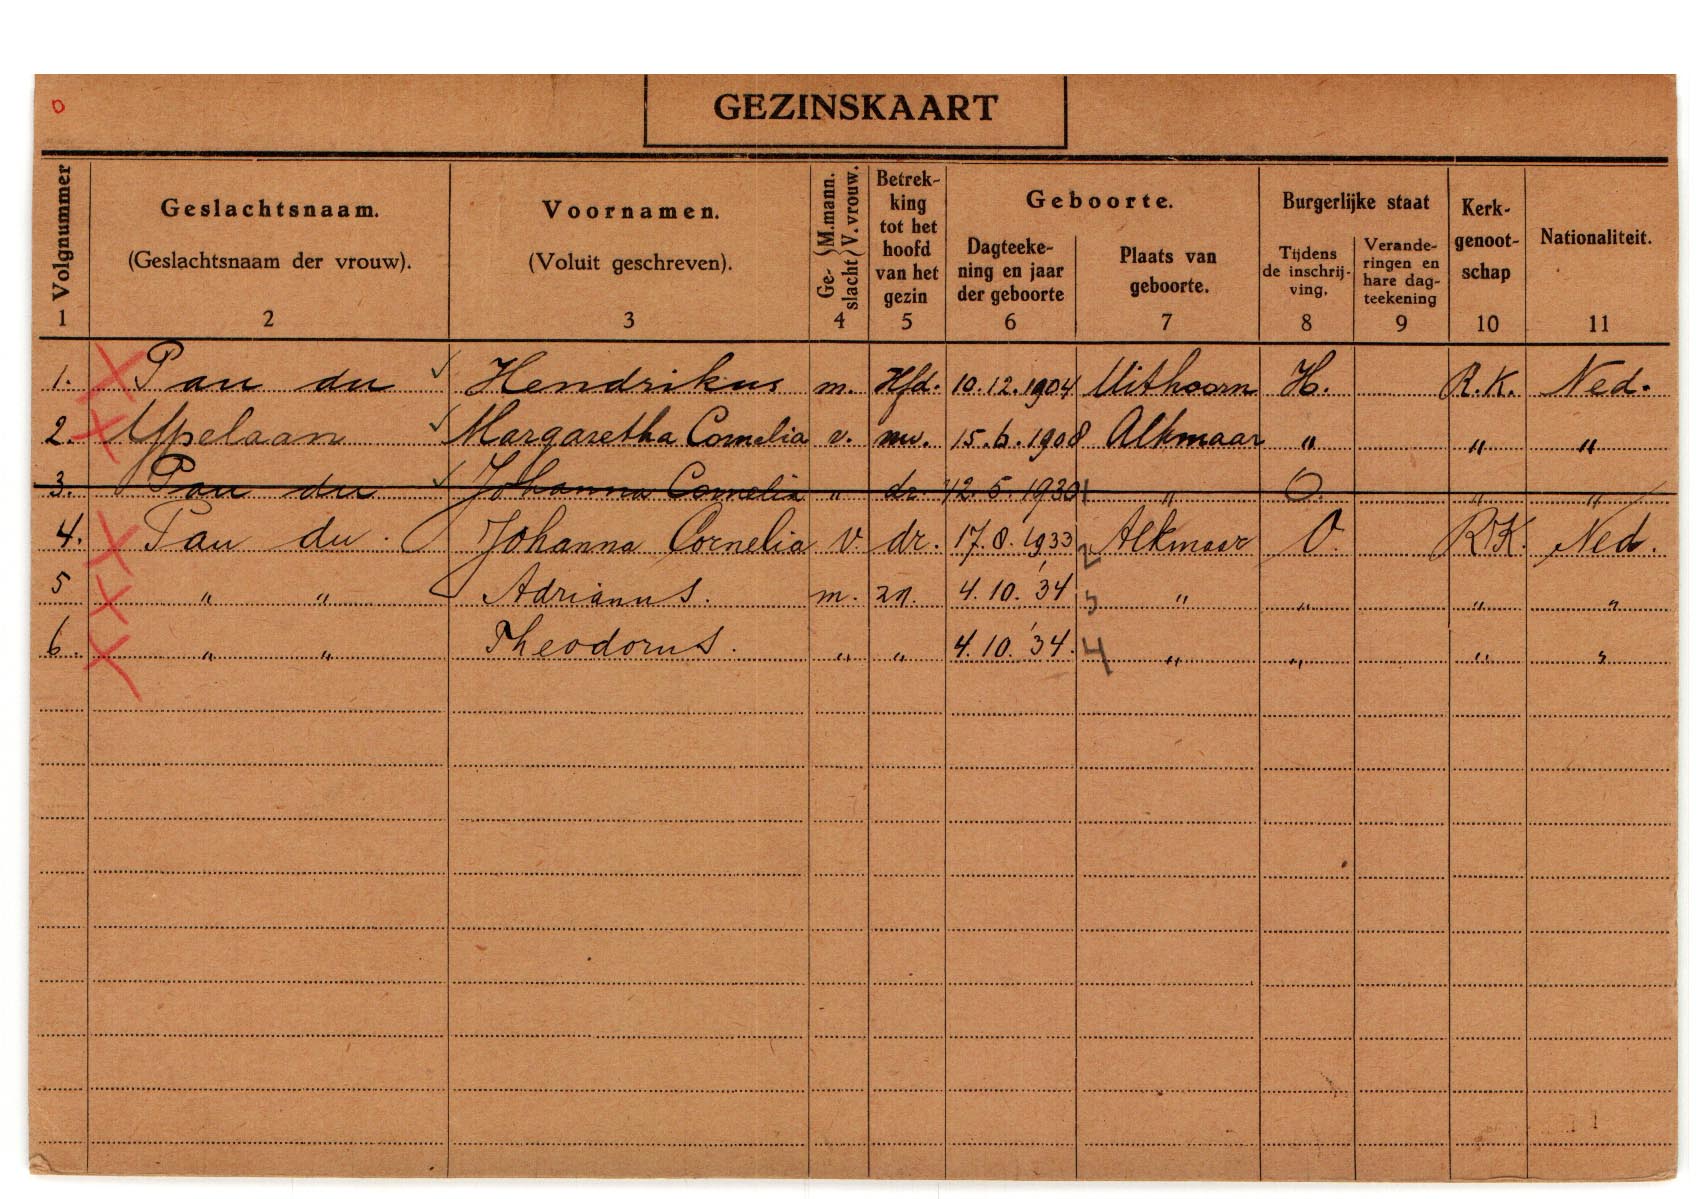 GEZINSKAART
Volgnummer
1
Geslachtsnaam.
(Geslachtsnaam der vrouw).
2
Voornamen.
(Voluit geschreven).
3
Ge- slacht { M. mann. V. vrouw.
4
Betrek-
king
tot het
hoofd
van het
gezin
5
Geboorte.
Dagteeke-
ning en jaar
der geboorte
6
Plaats van
geboorte.
7
Burgerlijke staat
Tijdens
de inschrij-
ving.
8
Verande-
ringen en
hare dag-
teekening
9
Kerk-
genoot-
schap
10
Nationaliteit.
11
1. Pau du Hendrikus m. Hfd. 10.12.1904 Uithoorn H. R.K. Ned.
2. Ypelaan Margaretha Cornelia v. mv. 15.6.1908 Alkmaar " " "
3. Pau du Johanna Cornelia " dr. 12.5.1930 1 " O. " "
4. Pau du. Johanna Cornelia v. dr. 17.8.1933 2 Alkmaar O. RK. Ned.
5 " " Adrianus. m. zn. 4.10.'34 3 " " " "
6. " " Theodorus. " " 4.10.'34. 4 " " " "